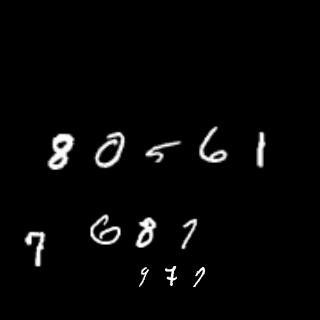 80561
7687
977